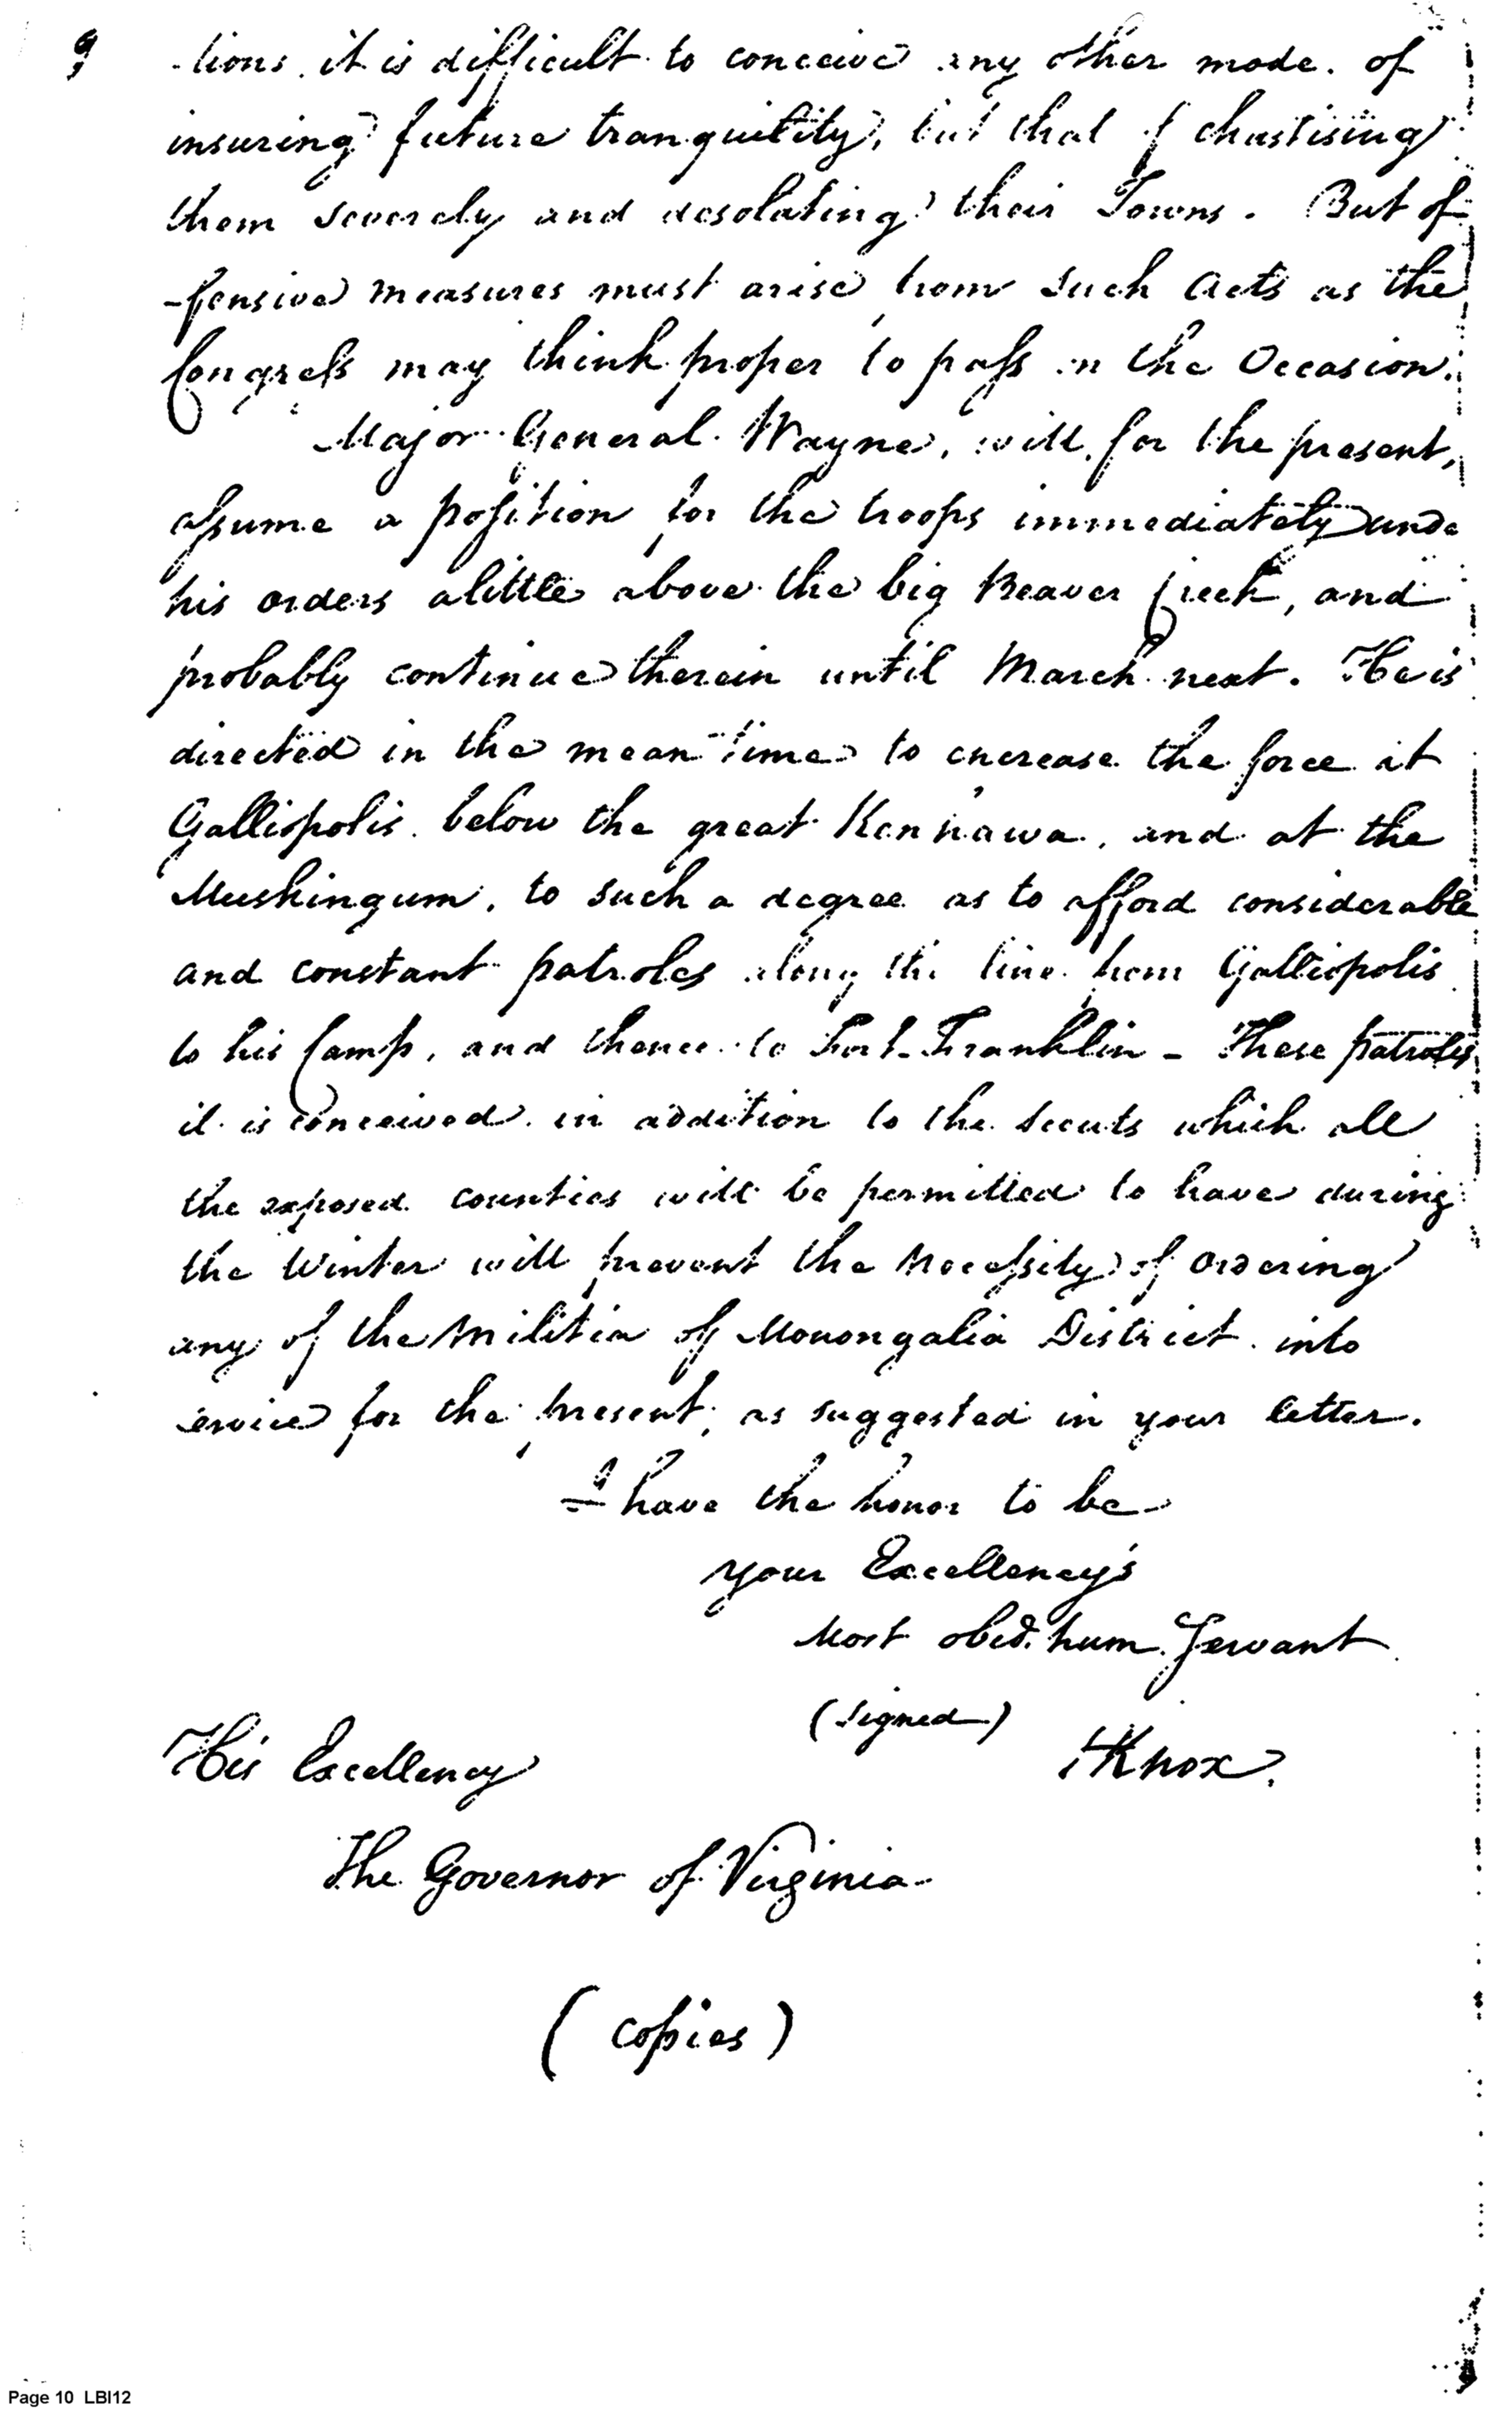 9
-tions, it is difficult to conceive any other mode of
insuring future tranquility, but that of chastising
them severely and desolating their Towns. But of-
-fensive measures must arise from such acts as the
Congress may think proper to pass on the Occasion.
Major General Wayne, will, for the present,
assume a position for the troops immediately unde
his orders a little above the big Beaver Creek, and
probably continue therein until March next. He is
directed in the mean time to encrease the force at
Galliopolis below the great Kenhawa, and at the
Muskingum, to such a degree as to afford considerable
and constant patroles along the line from Galliopolis
to his Camp, and thence to Fort Franklin – These patroles
it is conceived in addition to the scouts which all
the exposed counties will be permitted to have during
the Winter will prevent the Necessity of ordering
any of the Militia of Monongalia District into
service for the present, as suggested in your letter.
I have the honor to be
your Excellency's
Most obed. hum. Servant
(signed)
HKnox.
His Excellency
The Governor of Virginia
(copies)
Page 10 LBI12